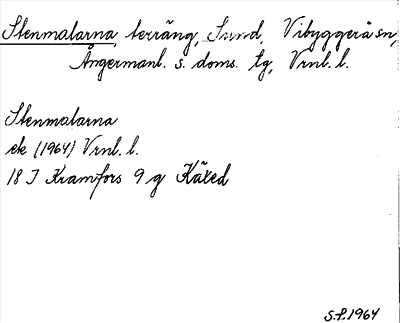 Stenmalarna, terräng, Sund, Vibyggerå sn,
Ångermanl. s. doms. tg, Vrnl. l.
Stenmalarna
ek (1964) Vrnl. l.
18 I Kramfors 9 g Käxed
S.F. 1964